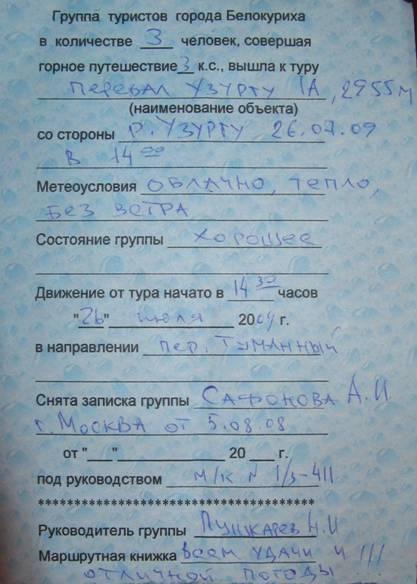 Группа туристов города Белокуриха
в количестве 3 человек, совершая
горное путешествие 3 к.с., вышла к туру
перевал Узургу 1А, 2955м
(наименование объекта)
со стороны р. Узургу 26.07.09
в 14 00
Метеоусловия облачно, тепло,
без ветра
Состояние группы хорошее
Движение от тура начато в 14 30 часов
"26" июля 2009 г.
в направлении пер. Туманный
Снята записка группы Сафонова А.И
г. Москва от 5.08.08
от "__"__________ 20__ г.
под руководством м/к N 1/3-411
**********************************
Руководитель группы Пушкарев Н.И
Маршрутная книжка всем удачи и
отличной погоды !!!